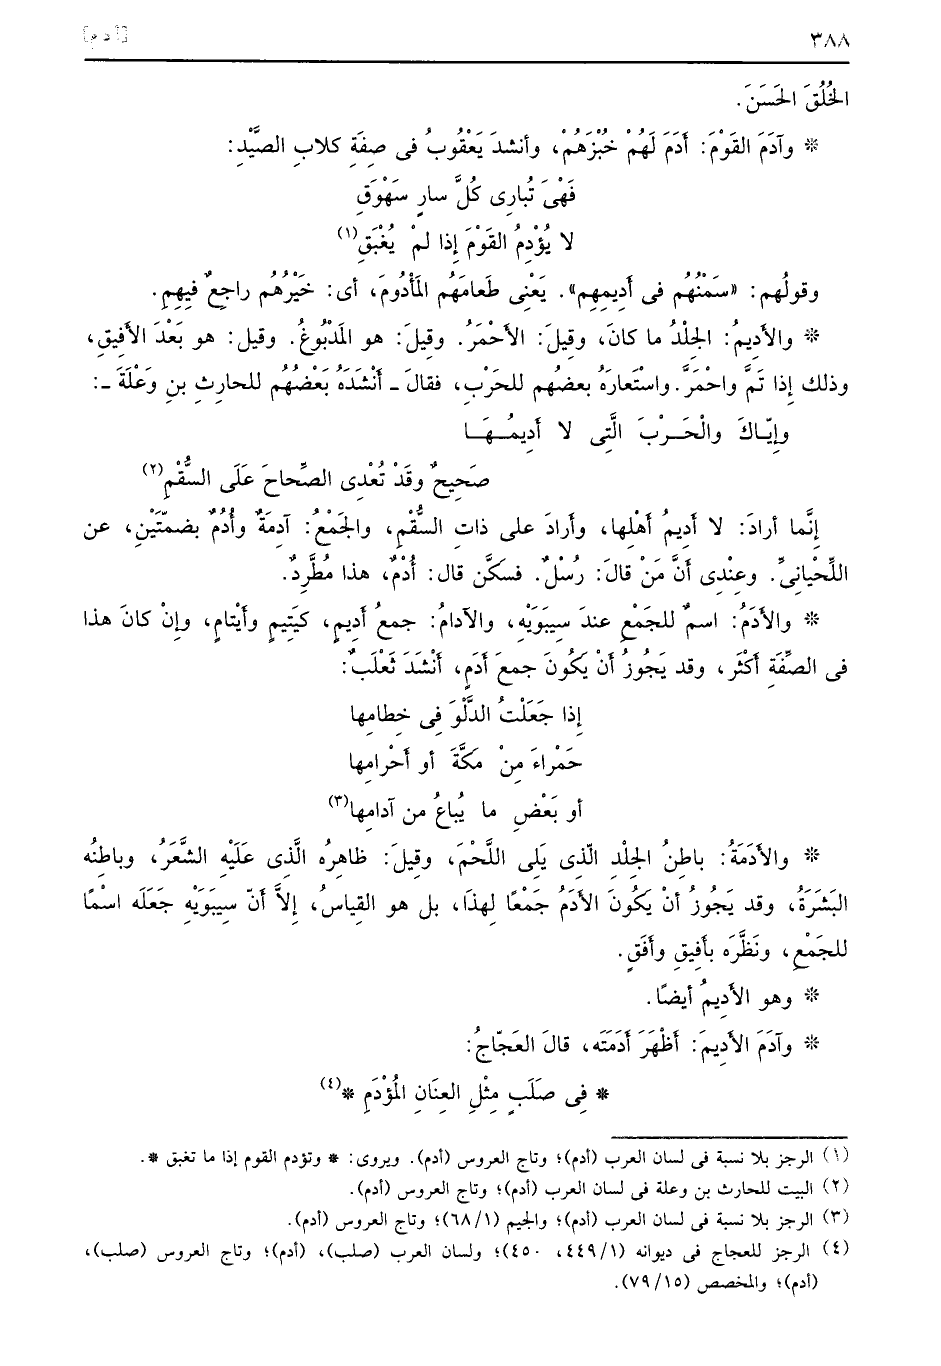 ٣٨٨
[أ د م]
الخُلُقَ الحَسَنَ.
* وآدَمَ القَوْمَ: أَدَمَ لَهُمْ خُبْزَهُمْ، وأنشدَ يَعْقُوبُ فى صِفَةِ كلابِ الصَّيْدِ:
فَهْىَ تُبارِى كُلَّ سارٍ سَهْوَقِ
لا يُؤْدِمُ القَوْمَ إذا لمْ يُغْبَقِ(١)
وقولُهم: «سَمْنُهُم فى أَديمِهِم». يَعْنِى طَعامَهُم المَأْدُومَ، أى: خَيْرُهُم راجعٌ فيهِم.
* والأَديمُ: الجِلْدُ ما كانَ، وقيلَ: الأحْمَرُ. وقيلَ: هو المَدْبُوغُ. وقيل: هو بَعْدَ الأَفيقِ،
وذلك إذا تَمَّ واحْمَرَّ. واسْتَعارَهُ بعضُهم للحَرْبِ، فقالَ ـ أَنْشَدَهُ بَعْضُهُم للحارِثِ بنِ وَعْلَةَ ـ:
وإيّاكَ والْحَرْبَ الَّتِى لا أَديمُهَا
صَحِيحٌ وقَدْ تُعْدِى الصِّحاحَ عَلَى السُّقْمِ(٢)
إنَّما أرادَ: لا أَديمُ أَهْلِها، وأَرادَ على ذاتِ السُّقْمِ، والجَمْعُ: آدِمَةٌ وأُدُمٌ بضمّتَيْنِ، عن
اللِّحْيانىِّ. وعِنْدِى أَنَّ مَنْ قالَ: رُسْلٌ. فسَكَّن قال: أُدْمٌ، هذا مُطَّرِدٌ.
* والأَدَمُ: اسمٌ للجَمْعِ عندَ سيبَوَيْهِ، والآدامُ: جمعُ أَديمٍ، كيَتِيمٍ وأَيْتامٍ، وإنْ كانَ هذا
فى الصِّفَةِ أَكْثَرَ، وقد يَجُوزُ أَنْ يَكُونَ جمعَ أَدَمٍ، أَنْشَدَ ثَعْلَبٌ:
إذا جَعَلْتُ الدَّلْوَ فِى خِطامِها
حَمْراءَ مِنْ مَكَّةَ أو أَحْرامِها
أو بَعْضِ ما يُباعُ من آدامِها(٣)
* والأَدَمَةُ: باطِنُ الجِلْدِ الّذِى يَلِى اللَّحْمَ، وقيلَ: ظاهِرُه الَّذِى عَلَيْهِ الشَّعَرُ، وباطِنُه
البَشَرَةُ، وقد يَجُوزُ أنْ يَكُونَ الأَدَمُ جَمْعًا لهذَا، بل هو القِياسُ، إلاَّ أنّ سيبَوَيْهِ جَعَلَه اسْمًا
للجَمْعِ، ونَظَّرَه بأَفيقِ وأَفَقٍ.
* وهو الأَديمُ أيضًا.
* وآدَمَ الأَديمَ: أَظْهَرَ أَدَمَتَه، قالَ العَجّاجُ:
* فِى صَلَبٍ مِثْلِ العِنَانِ المُؤْدَمِ *(٤)
(١) الرجز بلا نسبة فى لسان العرب (أدم)؛ وتاج العروس (أدم). ويروى: * وتؤدم القوم إذا ما تغبق *.
(٢) البيت للحارث بن وعلة فى لسان العرب (أدم)؛ وتاج العروس (أدم).
(٣) الرجز بلا نسبة فى لسان العرب (أدم)؛ والجيم (٦٨/١)؛ وتاج العروس (أدم).
(٤) الرجز للعجاج فى ديوانه (٤٤٩/١، ٤٥٠)؛ ولسان العرب (صلب)، (أدم)؛ وتاج العروس (صلب)،
(أدم)؛ والمخصص (٧٩/١٥).